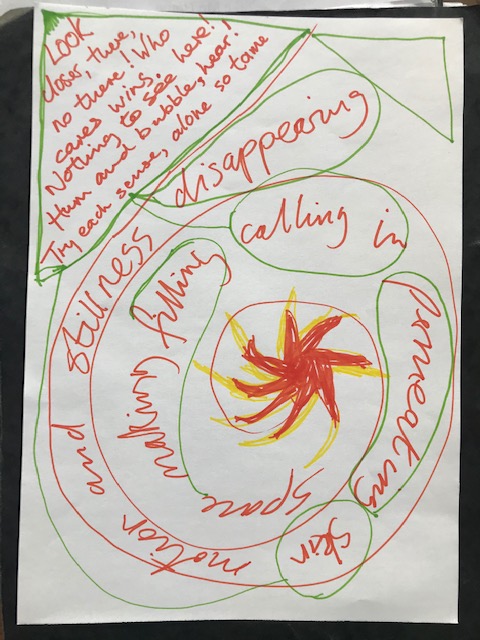 LOOK
closer, there,
no there! Who
cares wins.
Nothing to see here!
Hum and bubble, hear!
Try each sense, alone so tame
disappearing
calling in
permeating
skin
motion and stillness
space making filling